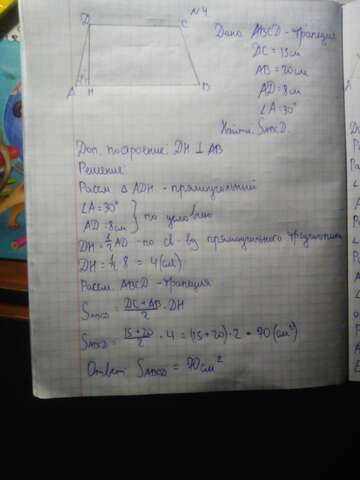 N4
D C
A H B
Дано: ABCD - трапеция
DC = 15см
AB = 20см
AD = 8см
∠A = 30°
Найти: S ABCD.
Доп. построение: DH ⊥ AB
Решение:
Рассм Δ ADH - прямоугольный
∠A = 30° } по условию
AD = 8см
DH = 1/2 AD - по св-ву прямоугольного треугольника
DH = 1/2 · 8 = 4 (см)
Рассм ABCD - трапеция
S ABCD = (DC + AB)/2 · DH
S ABCD = (15 + 20)/2 · 4 = (15 + 20) · 2 = 70 (см²)
Ответ: S ABCD = 70 см²